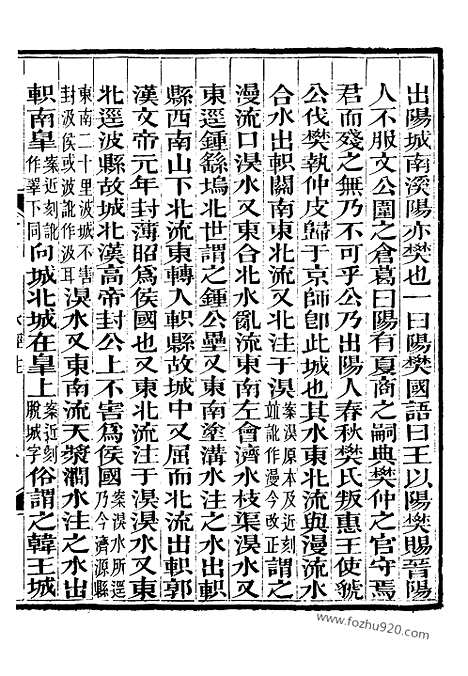 出陽城南溪陽亦樊也一曰陽樊國語曰王以陽樊賜晉陽
人不服文公圍之倉葛曰陽有夏商之嗣典樊仲之官守焉
君而殘之無乃不可乎公乃出陽人春秋樊氏叛惠王使虢
公伐樊執仲皮歸于京師卽此城也其水東北流與漫流水
合水出軹關南東北流又北注于湨案湨原本及近刻竝訛作漫今改正謂之
漫流口湨水又東合北水亂流東南左會濟水枝渠湨水又
東逕鍾繇塢北世謂之鍾公壘又東南塗溝水注之水出軹
縣西南山下北流東轉入軹縣故城中又屈而北流出軹郭
漢文帝元年封薄昭爲侯國也又東北流注于湨湨水又東
北逕波縣故城北漢高帝封公上不害爲侯國案湨水所逕乃今濟源縣
東南二十里波城不害封汲侯或波訛作汲耳湨水又東南流天漿澗水注之水出
軹南臯案近刻訛作睪下同向城北城在臯上案近刻脫城字俗謂之韓王城
www.fozhu920.com